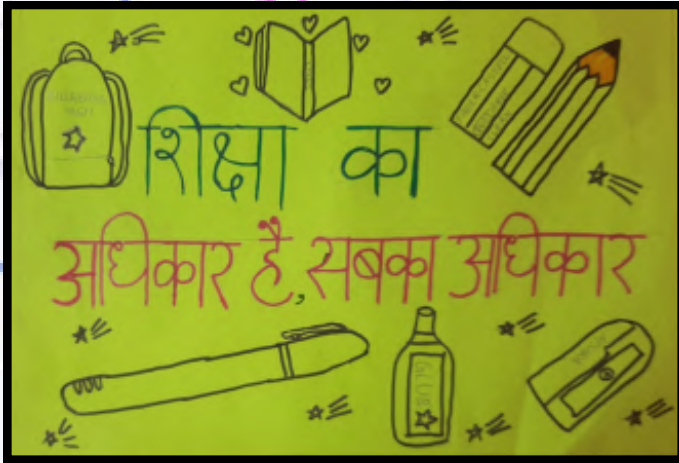 शिक्षा का
अधिकार है, सबका अधिकार
GLUE